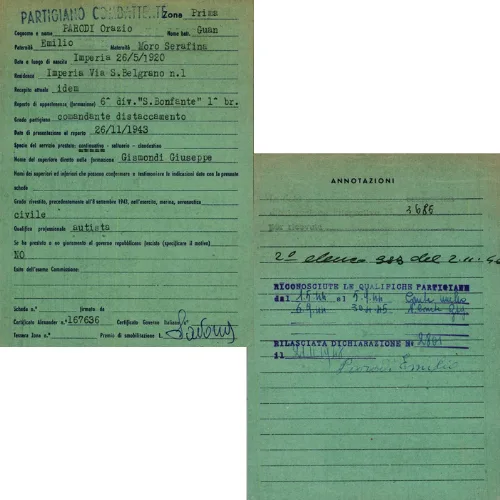 PARTIGIANO COMBATTENTE Zona Prima
Cognome e nome PARODI Orazio Nome batt. Guan
Paternità Emilio Maternità Moro Serafina
Data e luogo di nascita Imperia 26/5/1920
Residenza Imperia Via S.Belgrano n.1
Recapito attuale idem
Reparto di appartenenza (formazione) 6° div."S.Bonfante" 1° br.
Grado partigiano comandante distaccamento
Data di presentazione al reparto 26/11/1943
Specie del servizio prestato: continuativo - saltuario - clandestino
Nome del superiore diretto nella formazione Gismondi Giuseppe
Nomi dei superiori ed inferiori che possono confermare e testimoniare le indicazioni date con la presente
scheda
Grado rivestito, precedentemente all'8 settembre 1943, nell'esercito, marina, aeronautica
civile
Qualifica professionale autista
Se ha prestato o no giuramento al governo repubblicano fascista (specificare il motivo)
NO
Esito dell'esame Commissione:
Scheda n.° firmata da
Certificato Alexander n.° 167636 Certificato Governo Italiano n.°
Tessera Zona n.° Premio di smobilitazione L.
ANNOTAZIONI
3686
2° elenco 388 del 2.11.46
RICONOSCIUTE LE QUALIFICHE PARTIGIANE
dal 1.5.44 al 5.9.44
6.9.44 30.4.45
RILASCIATA DICHIARAZIONE N° 2801
il
Emilio